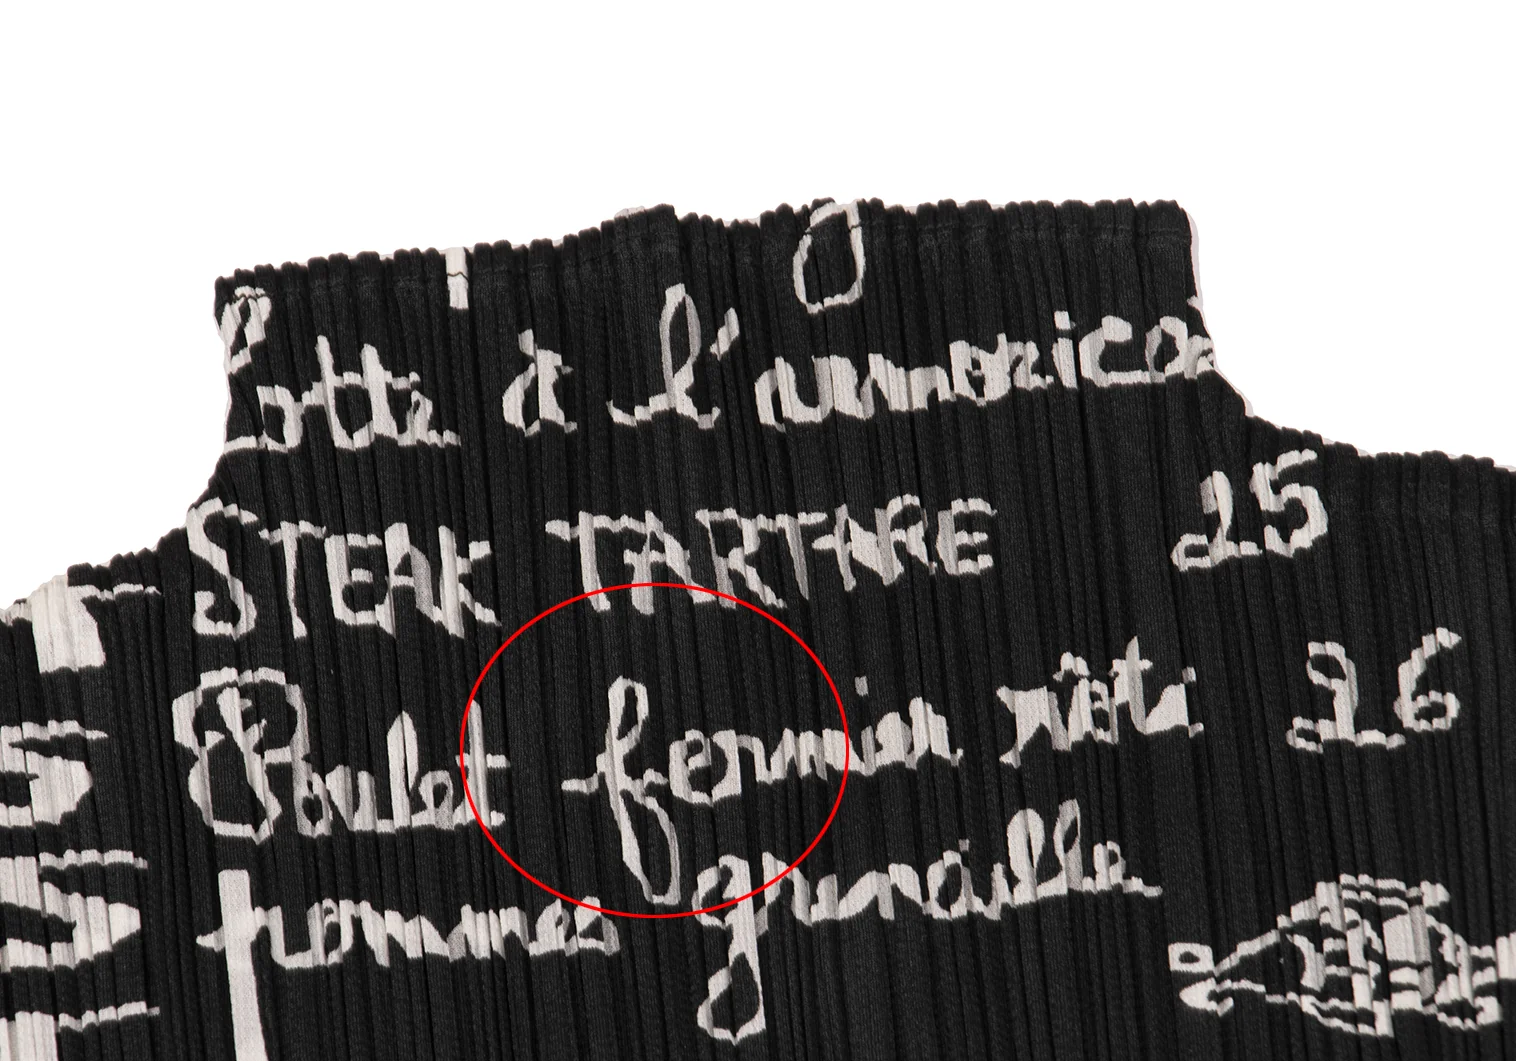 Lotte à l'armorica
STEAK TARTARE 25
Poulet fermier rôti 26
pommes grenaille